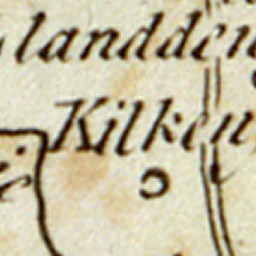 landden
Kilken